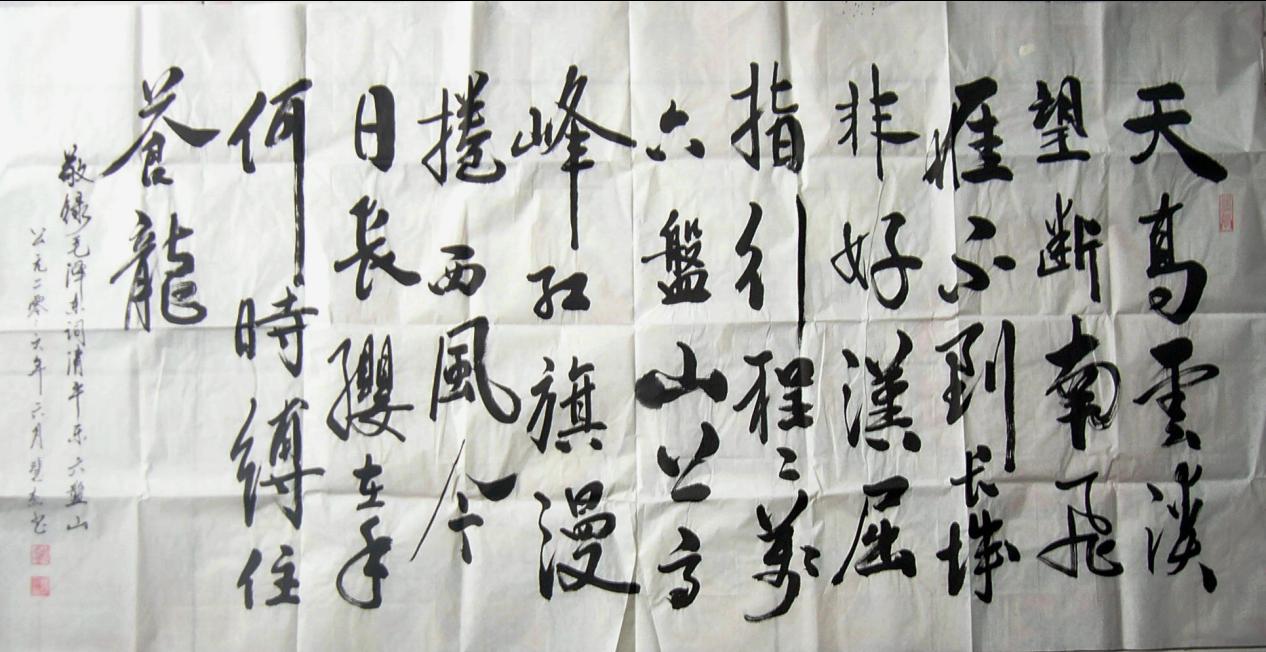 天高雲淡
望断南飛
雁不到长城
非好漢屈
指行程二萬
六盤山上高
峰红旗漫
捲西風今
日長纓在手
何時縛住
蒼龍
敬録毛泽东词清平乐六盤山
公元二零零六年六月书